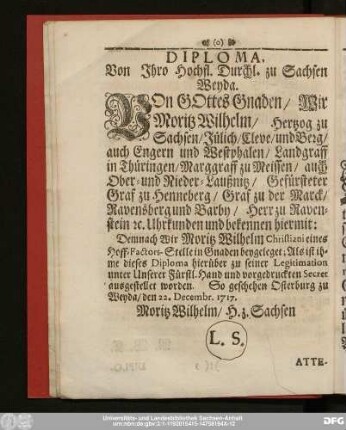 (o)
DIPLOMA.
Von Ihro Hochfl. Durchl. zu Sachsen
Weyda.
VOn GOttes Gnaden/ Wir
Moritz Wilhelm/ Hertzog zu
Sachsen/Jülich/Cleve/und Berg/
auch Engern und Westphalen/ Landgraff
in Thüringen/ Marggraff zu Meissen/ auch
Ober- und Nieder-Laußnitz/ Gefürsteter
Graf zu Henneberg/ Graf zu der Marck/
Ravensberg und Barby/ Herr zu Raven-
stein ꝛc. Uhrkunden und bekennen hiermit:
Demnach Wir Moritz Wilhelm Christiani eines
Hoff-Factors-Stelle in Gnaden beygeleget; Als ist ih-
me dieses Diploma hierüber zu seiner Legitimation
unter Unserer Fürstl. Hand und vorgedruckten Secret
ausgestellet worden. So geschehen Osterburg zu
Weyda/ den 22. Decembr. 1717.
Moritz Wilhelm/ H. z. Sachsen
L. S.
ATTE-
Universitäts- und Landesbibliothek Sachsen-Anhalt
DFG